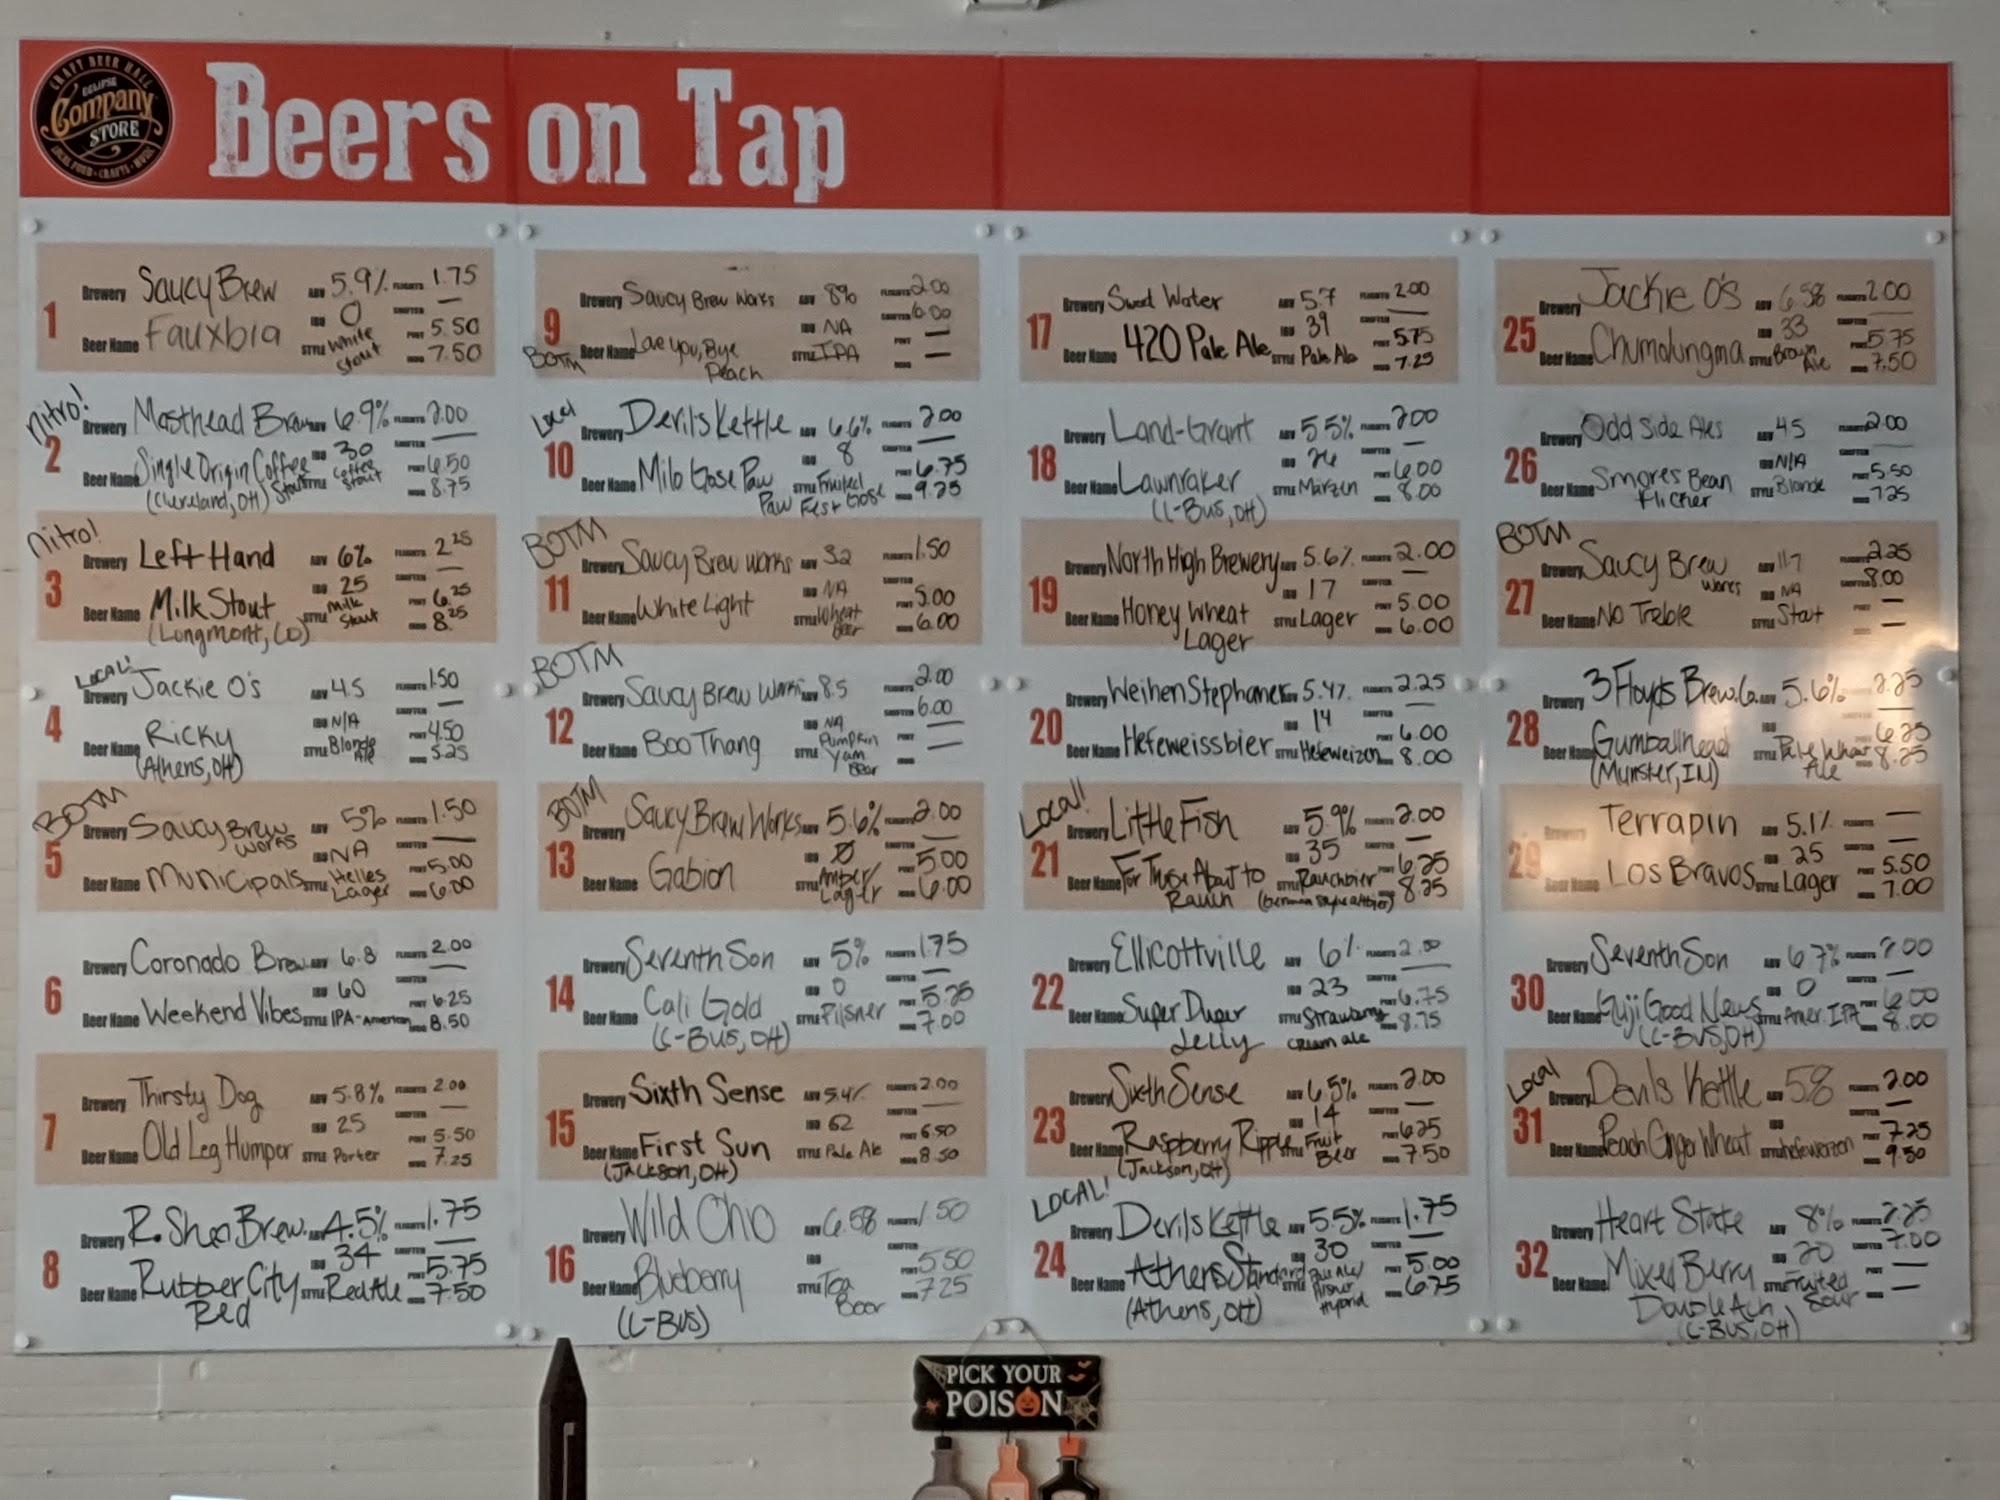 CRAFT BEER HALL
ECLIPSE
Company
STORE
LOCAL FOOD · CRAFTS · MUSIC
Beers on Tap
1
Brewery Saucy Brew ABV 5.9% FLIGHTS 1.75
IBU 0 SNIFTER —
Beer Name Fauxbia STYLE White Stout PINT 5.50
MUG 7.50
Nitro!
2
Brewery Masthead Brew ABV 6.9% FLIGHTS 2.00
IBU 30 SNIFTER —
Beer Name Single Origin Coffee Stout STYLE Coffee Stout PINT 6.50
(Cleveland, OH) MUG 8.75
Nitro!
3
Brewery Left Hand ABV 6% FLIGHTS 2.25
IBU 25 SNIFTER —
Beer Name Milk Stout STYLE Milk Stout PINT 6.25
(Longmont, CO) MUG 8.25
LOCAL!
4
Brewery Jackie O's ABV 4.5 FLIGHTS 1.50
IBU N/A SNIFTER —
Beer Name Ricky STYLE Blonde Ale PINT 4.50
(Athens, OH) MUG 5.25
BOTM
5
Brewery Saucy Brew Works ABV 5% FLIGHTS 1.50
IBU NA SNIFTER —
Beer Name Municipals STYLE Helles Lager PINT 5.00
MUG 6.00
6
Brewery Coronado Brew ABV 6.8 FLIGHTS 2.00
IBU 60 SNIFTER —
Beer Name Weekend Vibes STYLE IPA-American PINT 6.25
MUG 8.50
7
Brewery Thirsty Dog ABV 5.8% FLIGHTS 2.00
IBU 25 SNIFTER —
Beer Name Old Leg Humper STYLE Porter PINT 5.50
MUG 7.25
8
Brewery R. Shea Brew. ABV 4.5% FLIGHTS 1.75
IBU 34 SNIFTER —
Beer Name Rubber City Red STYLE Red Ale PINT 5.75
MUG 7.50
9
BOTM
Brewery Saucy Brew Works ABV 8% FLIGHTS 2.00
IBU NA SNIFTER 6.00
Beer Name Love you, Bye Peach STYLE IPA PINT —
MUG —
Local
10
Brewery Devil's Kettle ABV 6.6% FLIGHTS 2.00
IBU 8 SNIFTER —
Beer Name Milo Gose Paw Paw Fest STYLE Fruited Gose PINT 6.75
MUG 9.25
BOTM
11
Brewery Saucy Brew Works ABV 3.2 FLIGHTS 1.50
IBU NA SNIFTER —
Beer Name White Light STYLE Wheat Beer PINT 5.00
MUG 6.00
BOTM
12
Brewery Saucy Brew Works ABV 8.5 FLIGHTS 2.00
IBU NA SNIFTER 6.00
Beer Name Boo Thang STYLE Pumpkin Yam Beer PINT —
MUG —
BOTM
13
Brewery Saucy Brew Works ABV 5.6% FLIGHTS 2.00
IBU Ø SNIFTER —
Beer Name Gabion STYLE Amber Lager PINT 5.00
MUG 6.00
14
Brewery Seventh Son ABV 5% FLIGHTS 1.75
IBU 0 SNIFTER —
Beer Name Cali Gold STYLE Pilsner PINT 5.25
(C-Bus, OH) MUG 7.00
15
Brewery Sixth Sense ABV 5.4% FLIGHTS 2.00
IBU 62 SNIFTER —
Beer Name First Sun STYLE Pale Ale PINT 6.50
(Jackson, OH) MUG 8.50
16
Brewery Wild Ohio ABV 6.58 FLIGHTS 1.50
IBU SNIFTER —
Beer Name Blueberry STYLE Tea Beer PINT 5.50
(C-Bus) MUG 7.25
17
Brewery Sweet Water ABV 5.7 FLIGHTS 2.00
IBU 39 SNIFTER —
Beer Name 420 Pale Ale STYLE Pale Ale PINT 5.75
MUG 7.25
18
Brewery Land-Grant ABV 5.5% FLIGHTS 2.00
IBU 26 SNIFTER —
Beer Name Lawnraker STYLE Märzen PINT 6.00
(C-Bus, OH) MUG 8.00
19
Brewery North High Brewery ABV 5.6% FLIGHTS 2.00
IBU 17 SNIFTER —
Beer Name Honey Wheat Lager STYLE Lager PINT 5.00
MUG 6.00
20
Brewery Weihenstephaner ABV 5.4% FLIGHTS 2.25
IBU 14 SNIFTER —
Beer Name Hefeweissbier STYLE Hefeweizen PINT 6.00
MUG 8.00
Local!
21
Brewery Little Fish ABV 5.9% FLIGHTS 2.00
IBU 35 SNIFTER —
Beer Name For Those About to Rauch STYLE Rauchbier PINT 6.25
(German Style altbier) MUG 8.25
22
Brewery Ellicottville ABV 6% FLIGHTS 2.00
IBU 23 SNIFTER —
Beer Name Super Duper Jelly STYLE Strawberry cream ale PINT 6.75
MUG 8.75
23
Brewery Sixth Sense ABV 6.5% FLIGHTS 2.00
IBU 14 SNIFTER —
Beer Name Raspberry Ripple STYLE Fruit Beer PINT 6.25
(Jackson, OH) MUG 7.50
LOCAL!
24
Brewery Devils Kettle ABV 5.5% FLIGHTS 1.75
IBU 30 SNIFTER —
Beer Name Athens Standard STYLE Pale Ale/ Pilsner Hybrid PINT 5.00
(Athens, OH) MUG 6.75
25
Brewery Jackie O's ABV 6.58 FLIGHTS 2.00
IBU 33 SNIFTER —
Beer Name Chomolungma STYLE Brown Ale PINT 5.75
MUG 7.50
26
Brewery Odd Side Ales ABV 45 FLIGHTS 2.00
IBU N/A SNIFTER —
Beer Name Smores Bean Flicker STYLE Blonde PINT 5.50
MUG 7.25
BOTM
27
Brewery Saucy Brew Works ABV 11.7 FLIGHTS 2.25
IBU NA SNIFTER 8.00
Beer Name No Treble STYLE Stout PINT —
MUG —
28
Brewery 3 Floyds Brew. Co. ABV 5.6% FLIGHTS 2.25
IBU SNIFTER —
Beer Name Gumballhead STYLE Pale Wheat Ale PINT 6.25
(Munster, IN) MUG 8.25
29
Brewery Terrapin ABV 5.1% FLIGHTS —
IBU 25 SNIFTER —
Beer Name Los Bravos STYLE Lager PINT 5.50
MUG 7.00
30
Brewery Seventh Son ABV 6.7% FLIGHTS 2.00
IBU 0 SNIFTER —
Beer Name Guji Good News STYLE Amer. IPA PINT 6.00
(C-Bus, OH) MUG 8.00
Local
31
Brewery Devils Kettle ABV 58 FLIGHTS 2.00
IBU SNIFTER —
Beer Name Peach Ginger Wheat STYLE hefeweizen PINT 7.25
MUG 9.50
32
Brewery Heart State ABV 8% FLIGHTS 2.25
IBU 20 SNIFTER 7.00
Beer Name Mixed Berry Double Ach STYLE Fruited Sour PINT —
(C-Bus, OH) MUG —
PICK YOUR
POISON